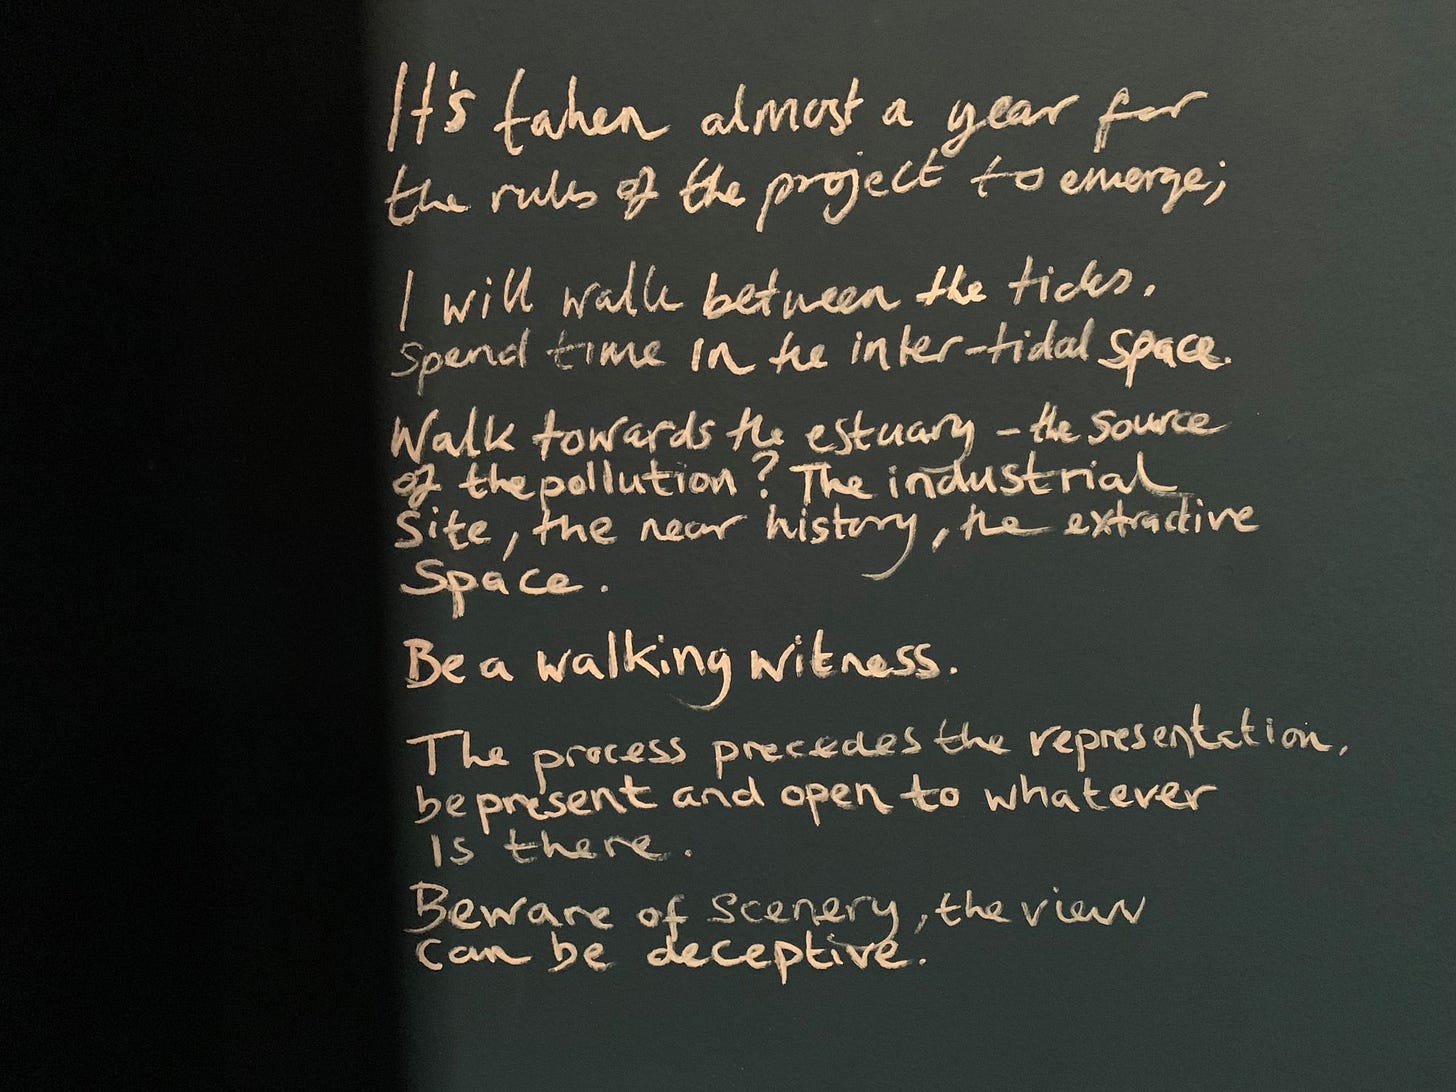 It's taken almost a year for
the rules of the project to emerge;
I will walk between the tides.
Spend time in the inter-tidal space.
Walk towards the estuary - the source
of the pollution? The industrial
site, the near history, the extractive
space.
Be a walking witness.
The process precedes the representation,
be present and open to whatever
is there.
Beware of scenery, the view
can be deceptive.